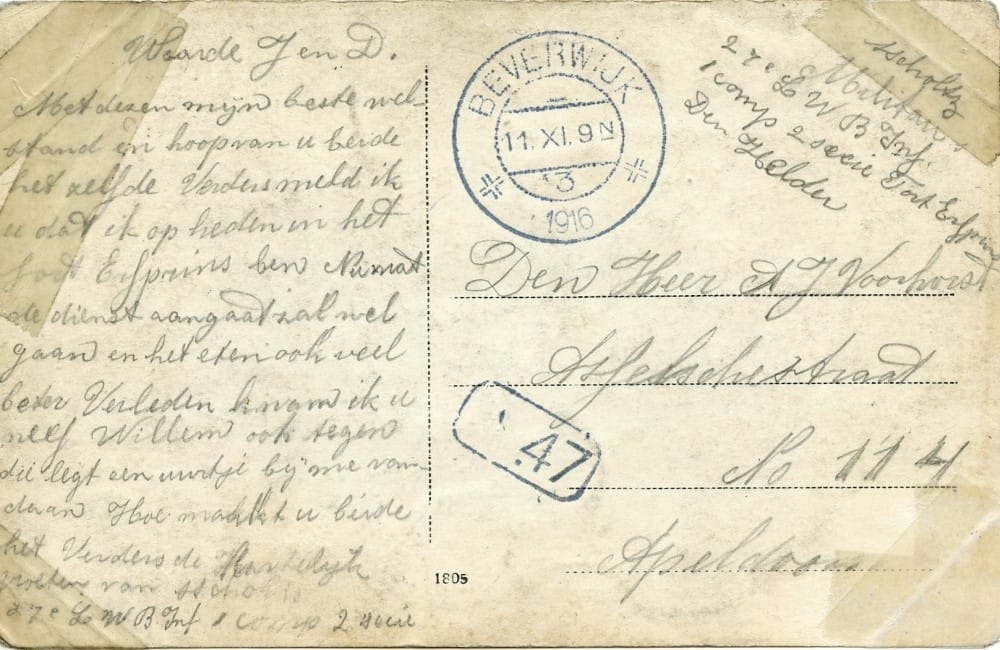 Waarde J en D.
Met dezen mijn beste wel-
stand en hoop van u beide
het zelfde Verders meld ik
u dat ik op heden in het
fort Erfprins ben Nu wat
de dienst aangaat zal wel
gaan en het eten ook veel
beter Verleden kwam ik u
neef Willem ook tegen
die legt een uurtje bij me van-
daan Hoe maakt u beide
het Verders de Hartelijk
groeten van
27e L W B Inf 1 comp 2 secie
BEVERWIJK
11. XI. 9 N
3
1916
Scholtz
Militair
27e L W B Inf.
1 comp 2 secie Fort Erfprins
Den Helder
Den Heer A J Voorhorst
Asselschestraat
No 114
Apeldoorn
47
1805